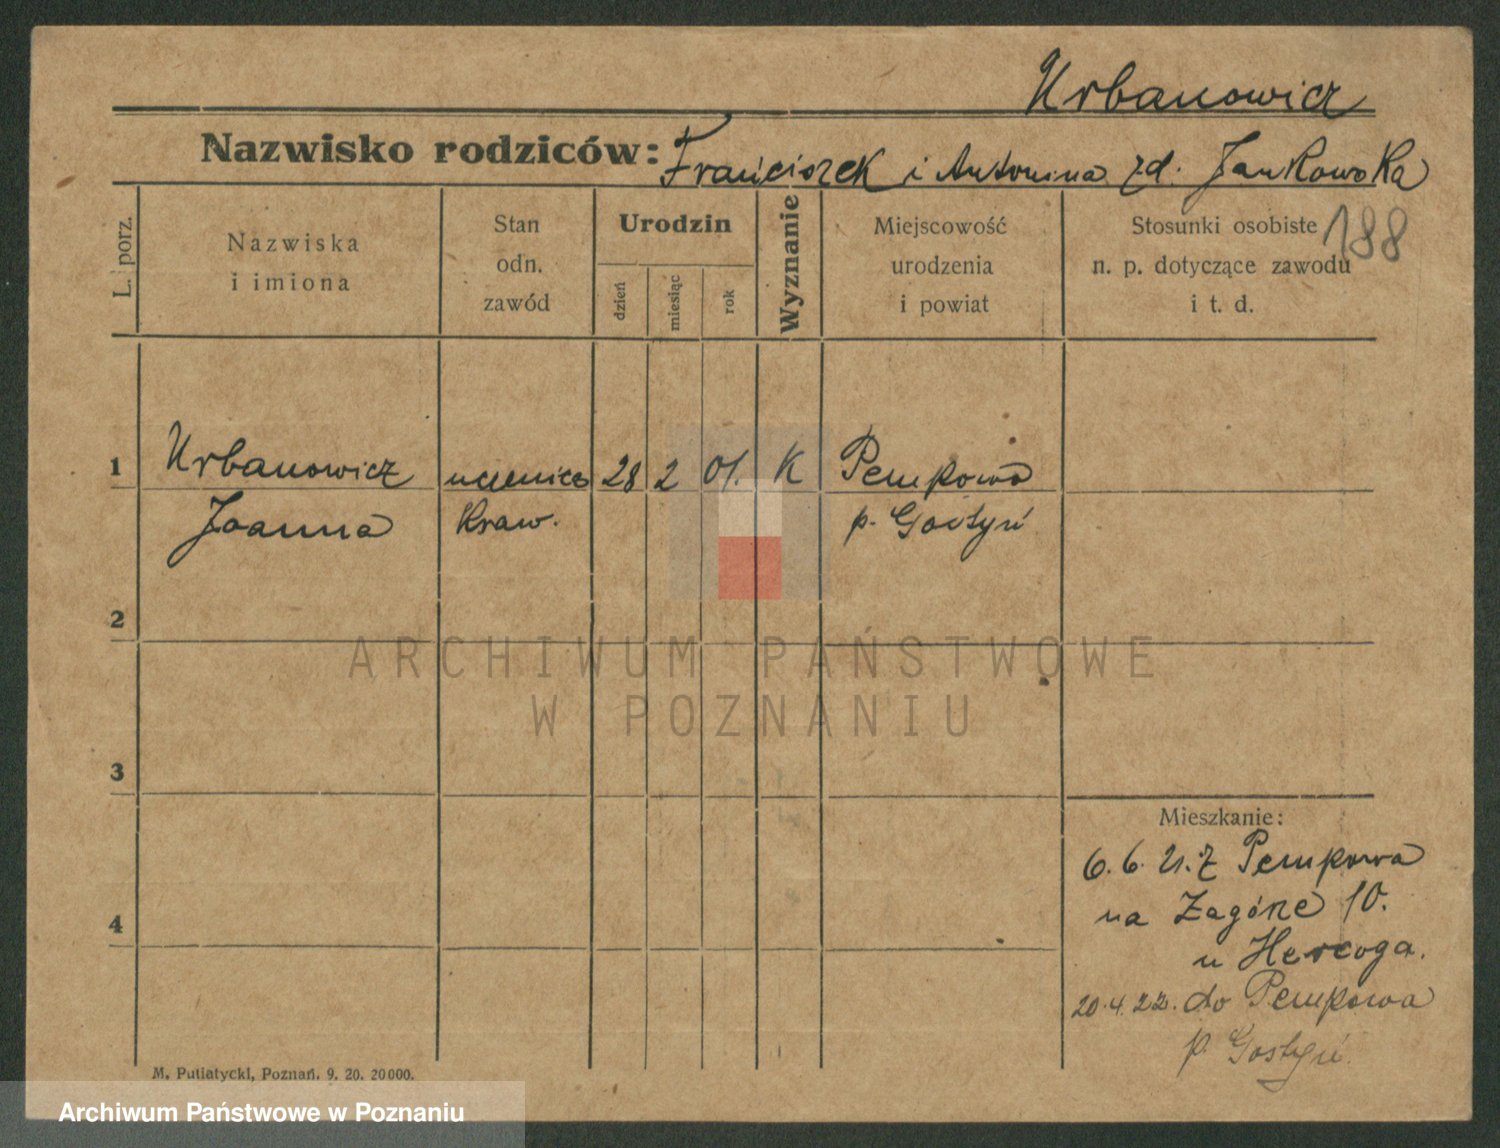 Urbanowicz
Nazwisko rodziców: Franciszek i Antonina zd. Jankowska
188
L. porz.
Nazwiska
i imiona
Stan
odn.
zawód
Urodzin
dzień
miesiąc
rok
Wyznanie
Miejscowość
urodzenia
i powiat
Stosunki osobiste
n. p. dotyczące zawodu
i t. d.
1 Urbanowicz uczenica 28 2 01. K Pempowo
Joanna kraw. p. Gostyń
2
3
4
Mieszkanie:
6.6.21. z Pempowa
na Zagórze 10.
u Hercoga.
20.4.22. do Pempowa
p. Gostyń.
M. Putiatycki, Poznań. 9. 20. 20000.
ARCHIWUM PAŃSTWOWE
W POZNANIU
Archiwum Państwowe w Poznaniu